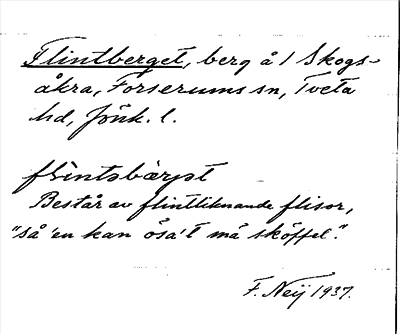 Flintberget, berg å 1 Skogs-
åkra, Forserums sn, Tveta
hd, Jönk. l.
flìntsbærjət
Består av flintliknande flisor,
"så'en kan ösa't må sköffel".
F. Neij 1937.